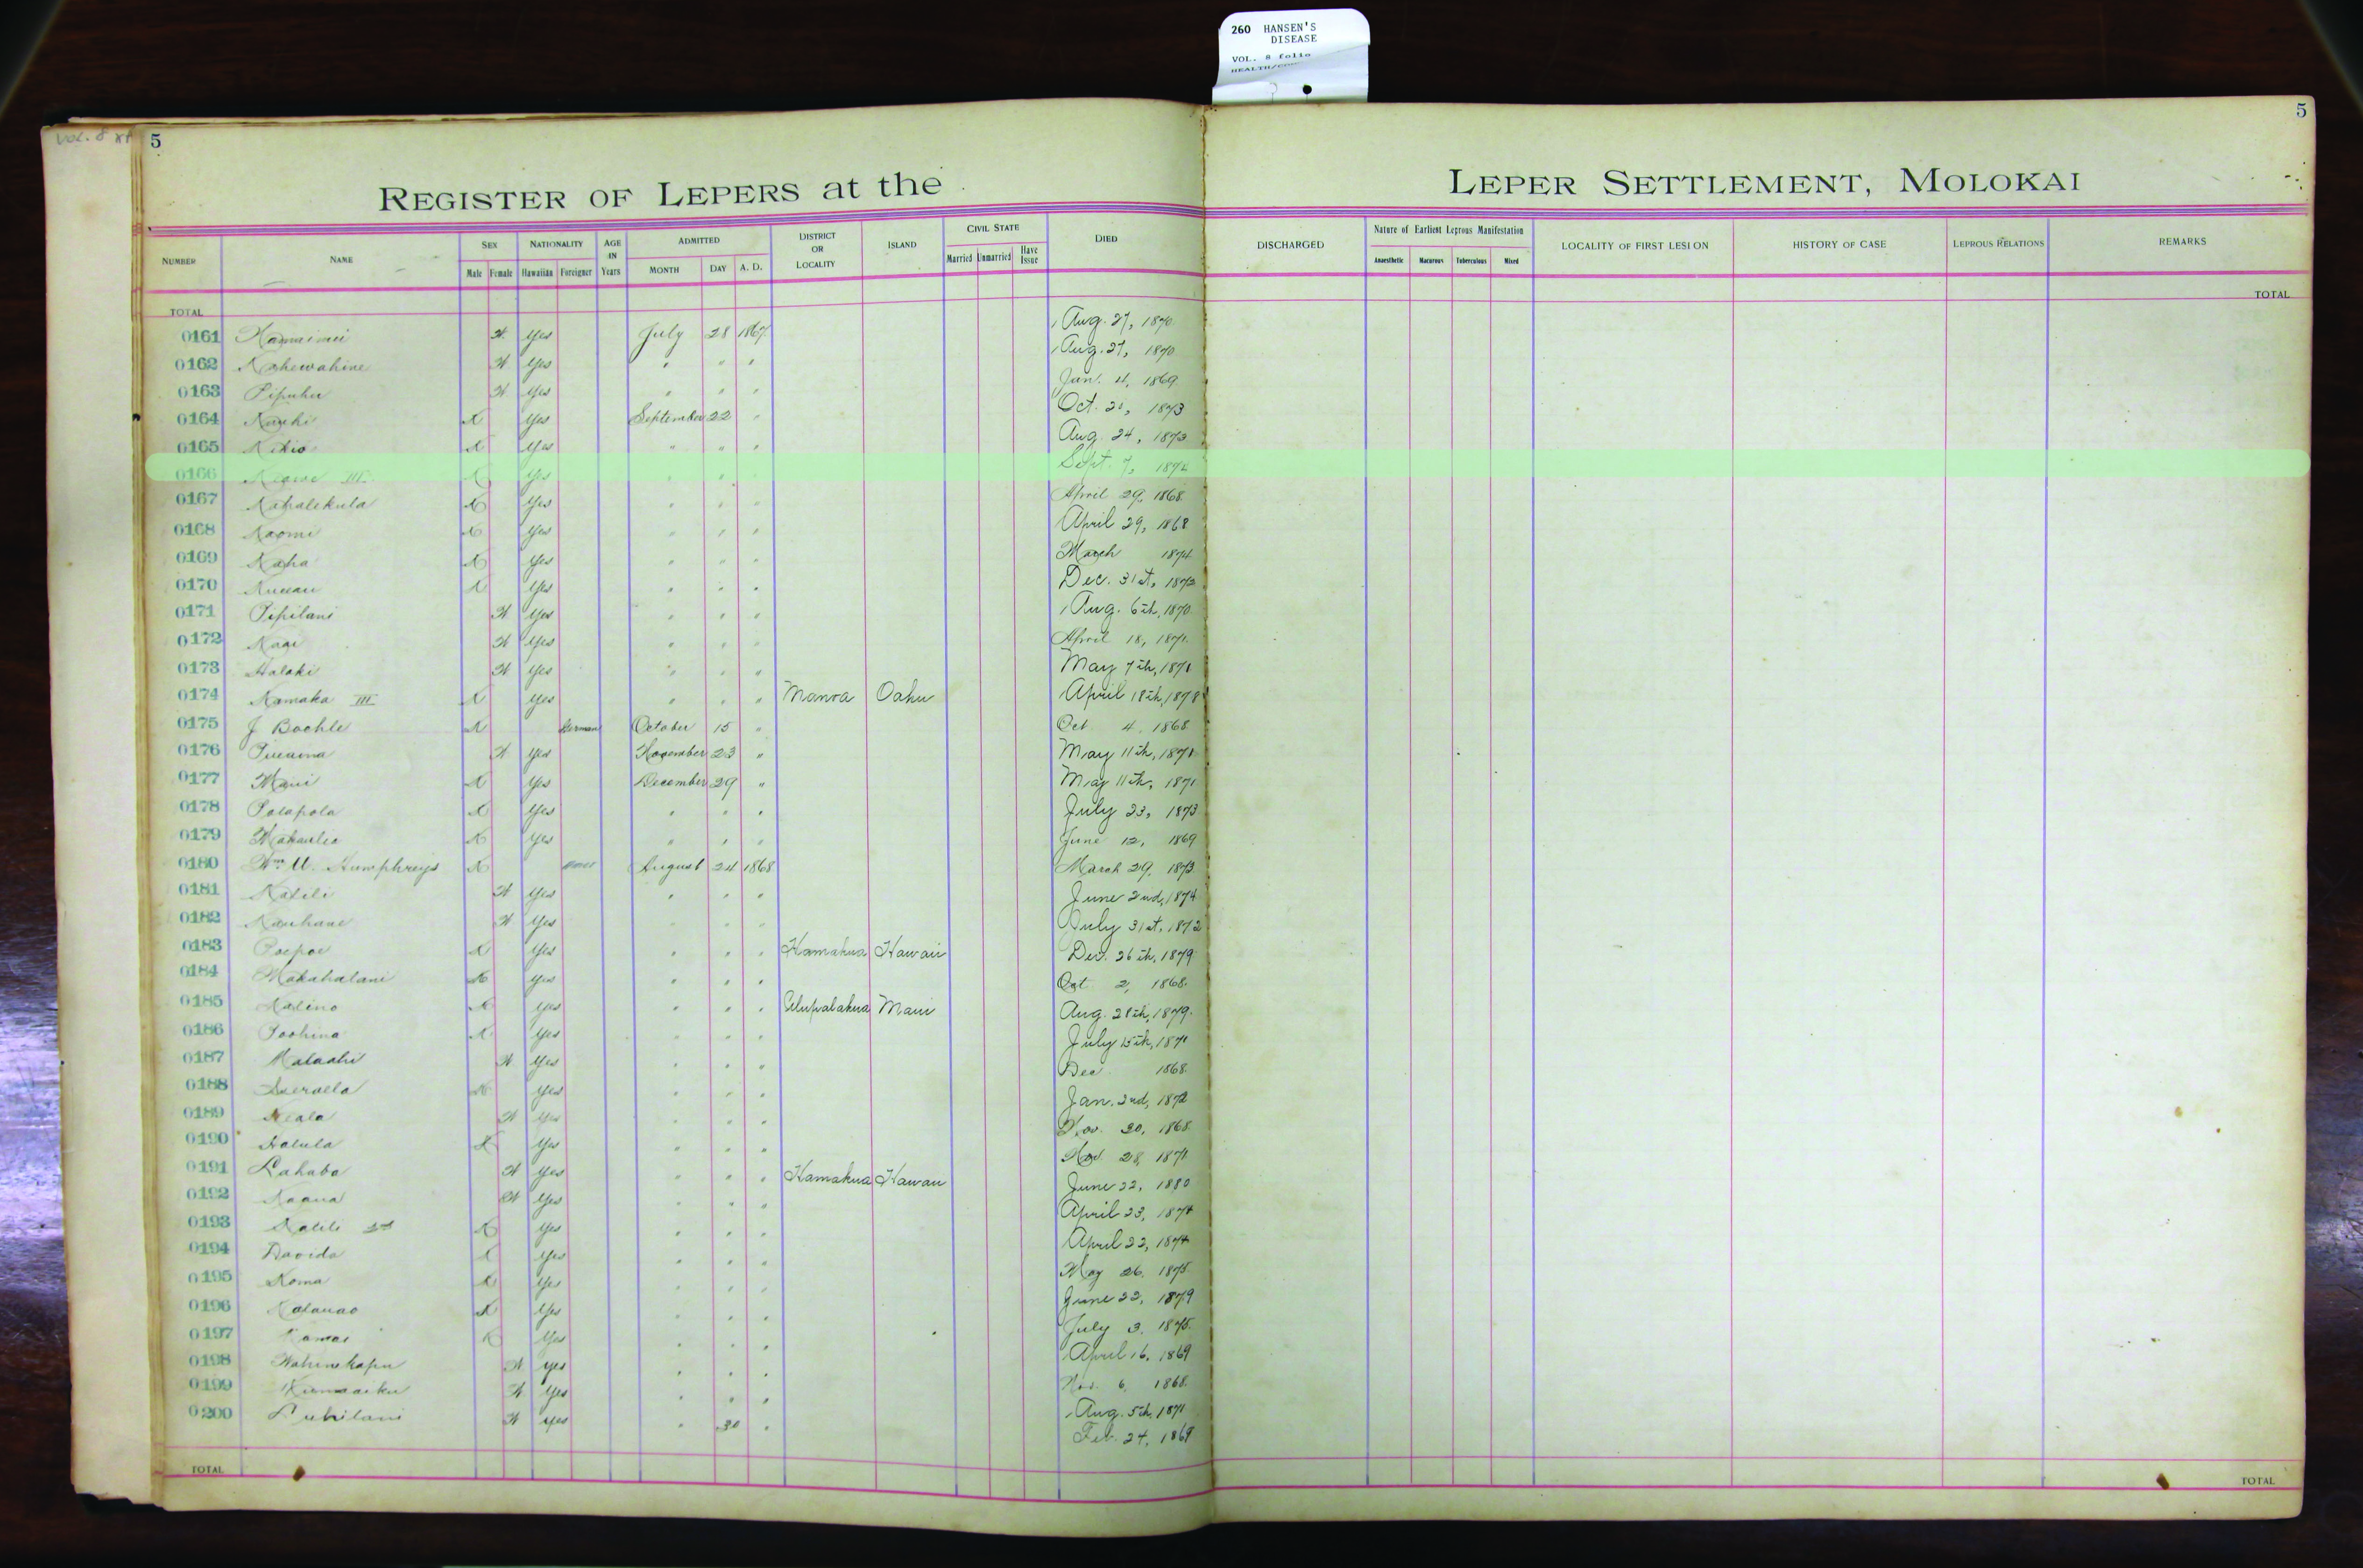 260 HANSEN'S
DISEASE
VOL. 8 folio
HEALTH/
VOL. 8
5
5
REGISTER OF LEPERS at the LEPER SETTLEMENT, MOLOKAI
NUMBER NAME SEX Male Female NATIONALITY Hawaiian Foreigner AGE IN Years ADMITTED MONTH DAY A. D. DISTRICT OR LOCALITY ISLAND CIVIL STATE Married Unmarried Have Issue DIED DISCHARGED Nature of Earliest Leprous Manifestation Anaesthetic Macurous Tuberculous Mixed LOCALITY OF FIRST LESION HISTORY OF CASE LEPROUS RELATIONS REMARKS
TOTAL TOTAL
0161 Yes July 28 1867 Aug. 27, 1870
0162 Kahewahine Yes " " " Aug. 27, 1870
0163 Pipuhu Yes " " " Jan. 4, 1869
0164 Yes September 22 " Oct. 1873
0165 Kikio Yes " " " Aug. 24, 1873
0166 III Yes " " " Sept. 7,
0167 Yes " " " April 29, 1868.
0168 Naomi Yes " " " April 29, 1868
0169 Kaha Yes " " " March 1874
0170 Yes " " " Dec. 31st, 1873
0171 Pipilani Yes " " " Aug. 6th, 1870.
0172 Yes " " " April 18, 1871.
0173 Halaki Yes " " " May 7th, 1871
0174 Kamaka III Yes " " " Manoa Oahu April 18th, 1878
0175 J Bochle German October 15 " Oct 4, 1868
0176 Yes November 23 " May 11th, 1871
0177 Maui Yes December 29 " May 11th, 1871
0178 Polapola Yes " " " July 23, 1873
0179 Yes " " " June 12, 1869
0180 Wm. Humphreys August 24 1868 March 29, 1873
0181 Kalili Yes " " " June 2nd, 1874
0182 Kauhane Yes " " " July 31st, 1872
0183 Poepoe Yes " " " Hamakua Hawaii Dec. 26th, 1879
0184 Makahalani Yes " " " Oct 2, 1868.
0185 Kalino Yes " " " Ulupalakua Maui Aug. 28th, 1879.
0186 Poohina Yes " " " July 15th, 1871
0187 Malaahi Yes " " " Dec 1868.
0188 Yes " " " Jan. 2nd, 1872
0189 Keala Yes " " " Nov. 30, 1868.
0190 Halula Yes " " " Nov. 28, 1871
0191 Lahaba Yes " " " Hamakua Hawaii June 22, 1880
0192 Kaaua Yes " " " April 23, 1874
0193 Kalili 2nd Yes " " " April 22, 1874
0194 Davida Yes " " " May 26, 1875.
0195 Koma Yes " " " June 22, 1879
0196 Kalauao Yes " " " July 3, 1875.
0197 Kamai Yes " " " April 16, 1869
0198 Wahinekapu yes " " " Nov. 6, 1868.
0199 Yes " " " Aug. 5th, 1871
0200 yes " 30 " Feb. 24, 1869
TOTAL TOTAL